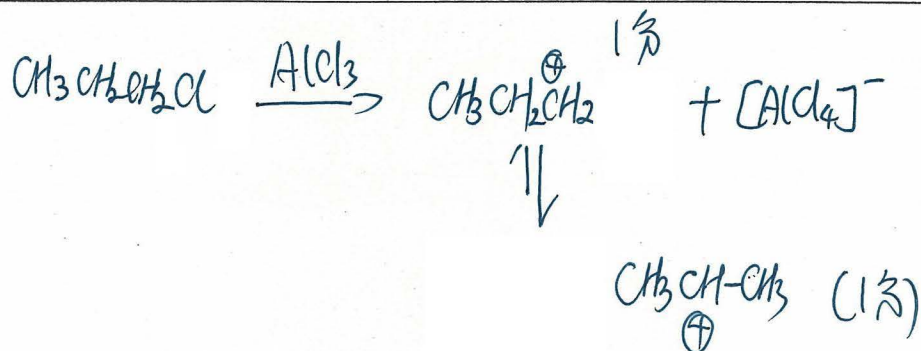 1分
CH3CH2CH2Cl AlCl3 → CH3CH2CH2 ⊕ + [AlCl4]⁻
⇌
CH3CH-CH3 (1分)
⊕